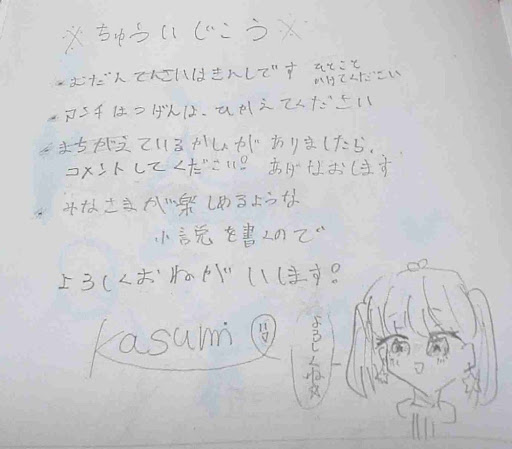 ※ちゅういじこう※
・むだんてんさいはきんしです ひとこと
かけてください
・アンチはつげんは、ひかえてください
・まちがえているかしょがありましたら、
コメントしてください! あげなおします
・みなさまが楽しめるような
小説を書くので
よろしくおねがいします!
kasumi
よろしくね